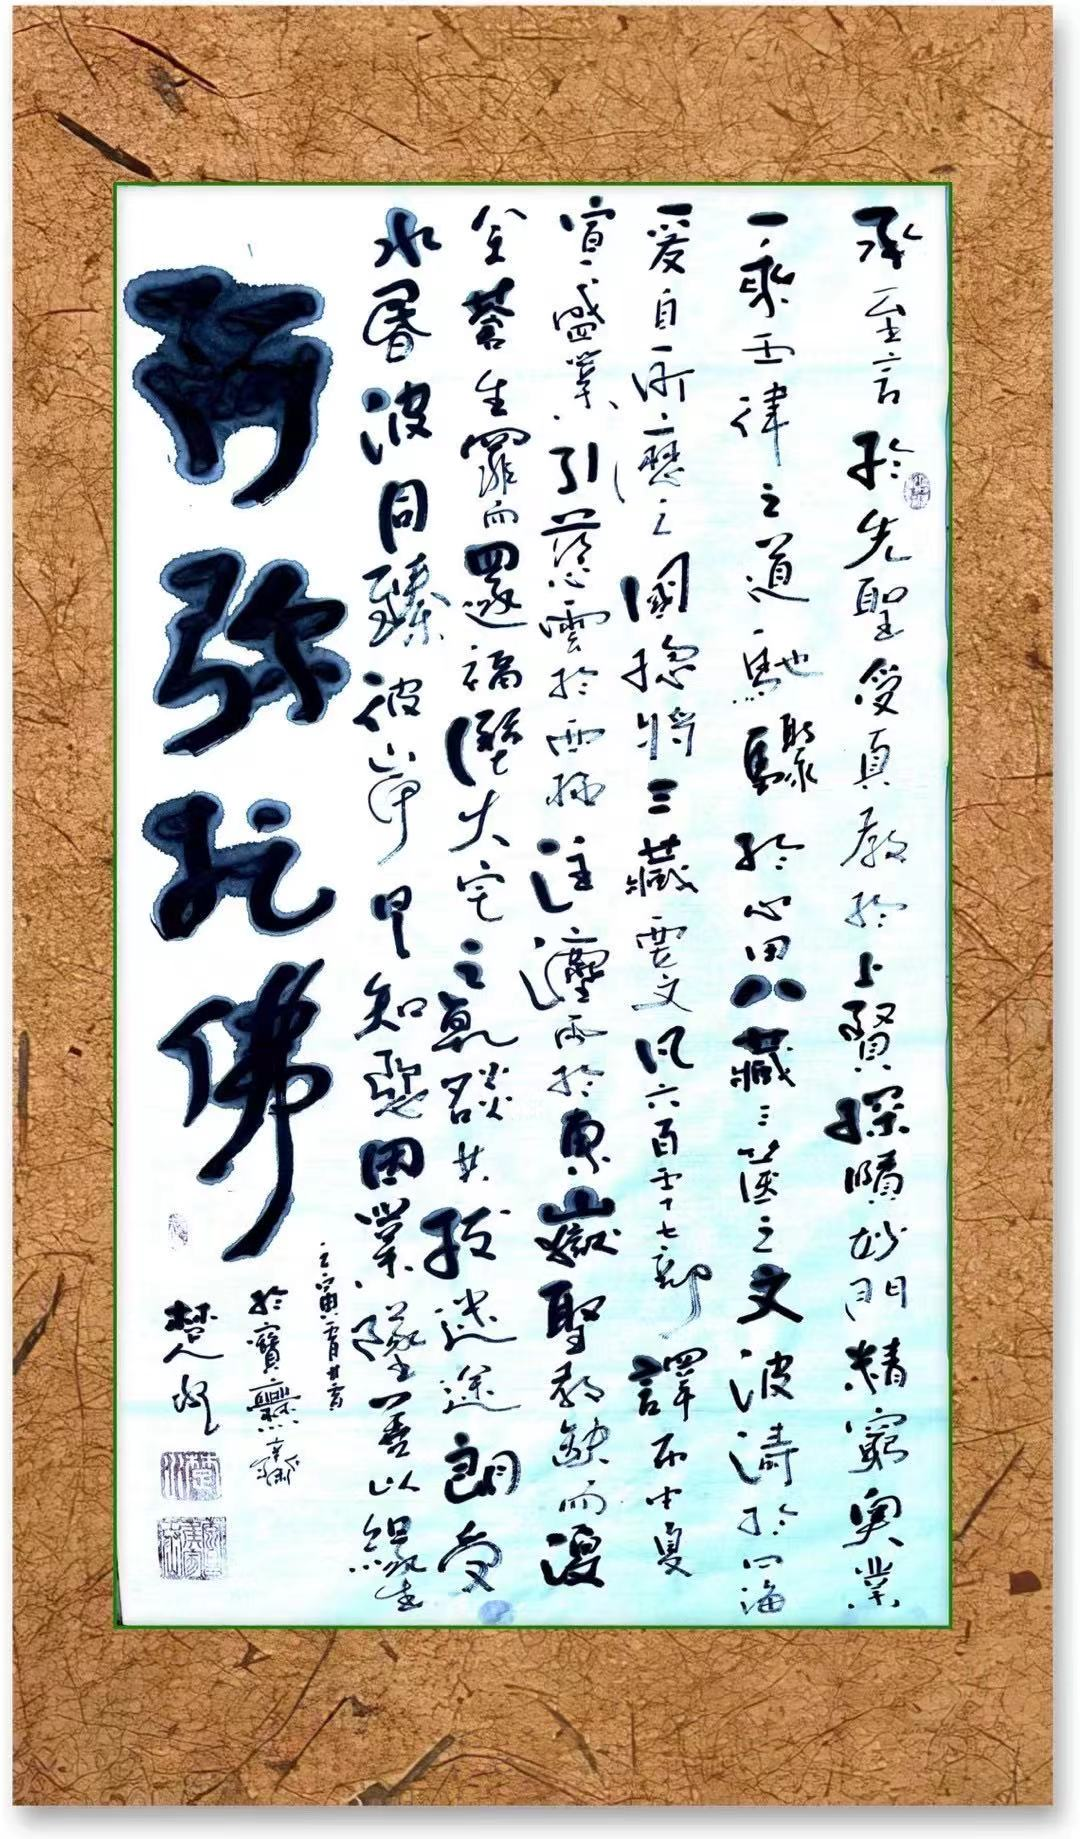 承至言於先聖受真教於上賢探賾妙門精窮奧業
一乘五律之道馳驟於心田八藏三篋之文波濤於口海
爰自所歷之國總將三藏要文凡六百五十七部譯布中夏
宣盛業引慈雲於西極注灋雨於東嶽聖教缺而復
全蒼生罪而還福溼火宅之乾焰共拔迷途朗愛
水昏波同臻彼岸是知惡因業墜善以緣生
阿弥陀佛
於寶
楚